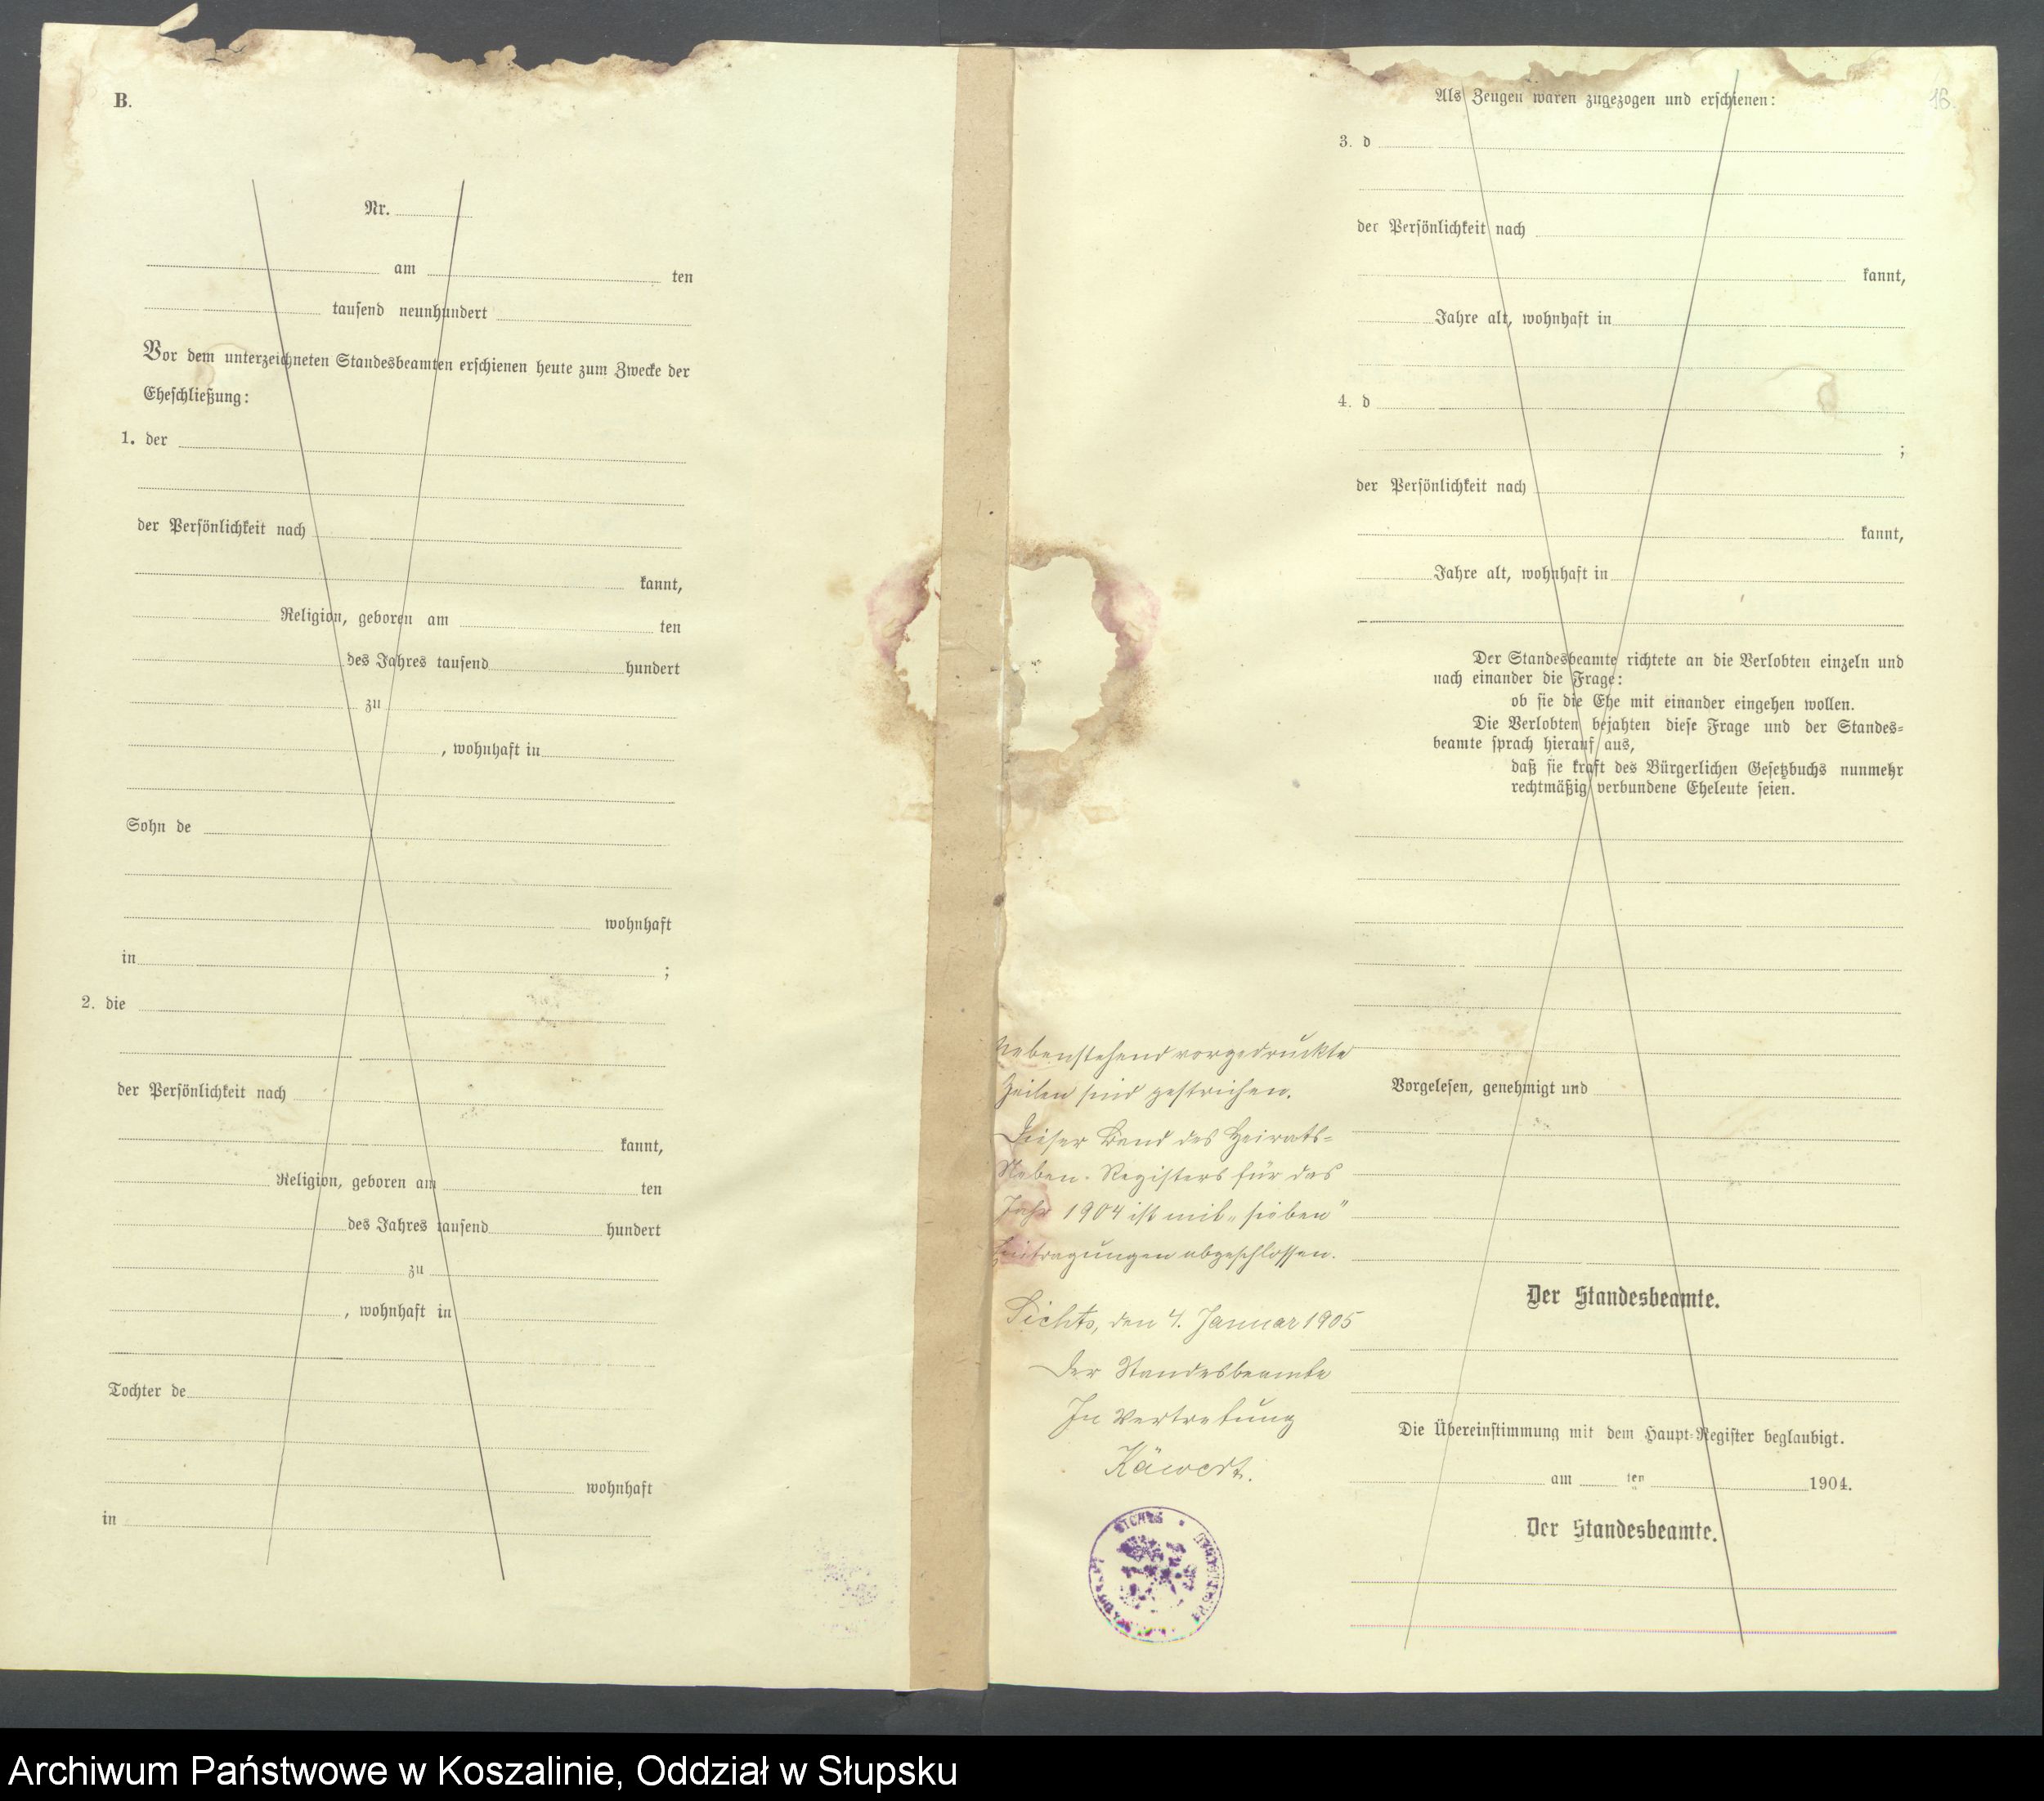 B.
Nr.
am ten
tausend neunhundert
Vor dem unterzeichneten Standesbeamten erschienen heute zum Zwecke der
Eheschließung:
1. der
der Persönlichkeit nach
kannt,
Religion, geboren am ten
des Jahres tausend hundert
zu
, wohnhaft in
Sohn de
wohnhaft
in ;
2. die
der Persönlichkeit nach
kannt,
Religion, geboren am ten
des Jahres tausend hundert
zu
, wohnhaft in
Tochter de
wohnhaft
in
16
Als Zeugen waren zugezogen und erschienen:
3. d
der Persönlichkeit nach
kannt,
Jahre alt, wohnhaft in
4. d
;
der Persönlichkeit nach
kannt,
Jahre alt, wohnhaft in
Der Standesbeamte richtete an die Verlobten einzeln und
nach einander die Frage:
ob sie die Ehe mit einander eingehen wollen.
Die Verlobten bejahten diese Frage und der Standes-
beamte sprach hierauf aus,
daß sie kraft des Bürgerlichen Gesetzbuchs nunmehr
rechtmäßig verbundene Eheleute seien.
Nebenstehend vorgedruckte
Zeilen sind gestrichen.
Dieser Band des Heirats-
Neben-Registers für das
Jahr 1904 ist mit „sieben"
Eintragungen abgeschlossen.
den 4. Januar 1905
Der Standesbeamte
In Vertretung
Vorgelesen, genehmigt und
Der Standesbeamte.
Die Übereinstimmung mit dem Haupt-Register beglaubigt.
am ten 1904.
Der Standesbeamte.
Archiwum Państwowe w Koszalinie, Oddział w Słupsku